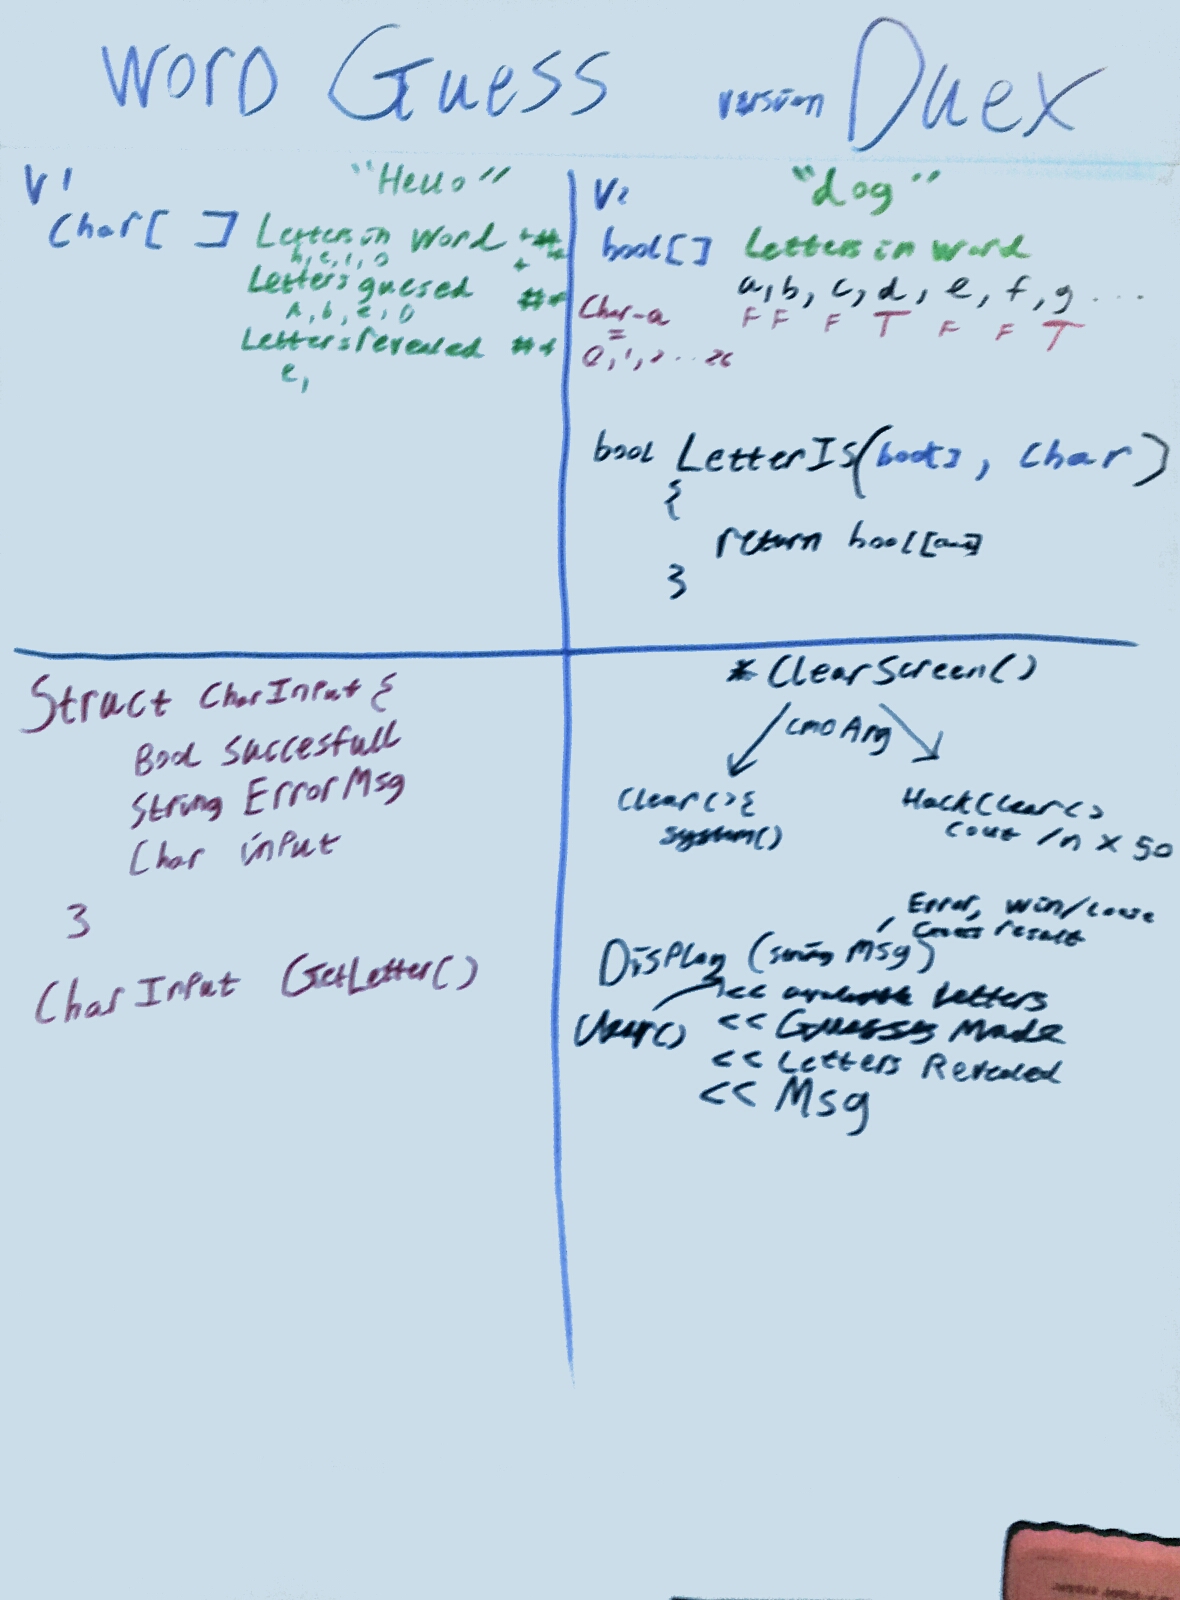 WORD Guess version Duex
V1 "Hello"
Char[ ] Letters in Word
h, e, l, o
Letters guesed
A, b, e, o
Letters revealed
e,
V2 "dog"
bool[] Letters in word
a, b, c, d, e, f, g ...
F F F T F F T
Char-a
=
0, 1, 2 ... 26
bool LetterIs(bool[], Char)
{
return bool[]
}
Struct CharInput {
Bool Succesfull
String ErrorMsg
Char input
}
CharInput GetLetter()
* ClearScreen()
CMD Arg
Clear(){
system()
HackClear()
cout /n x 50
Error, win/loose
Guess result
Display (string Msg)
<< available Letters
User() << Guesses Made
<< Letters Revealed
<< Msg